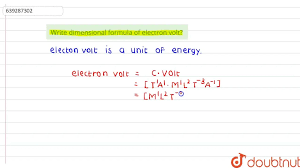 639287302
Write dimensional formula of electron volt?
electron volt is a unit of energy.
electron volt = C. Volt
= [T¹A¹. M¹L² T⁻³A⁻¹]
= [M¹L² T⁻²
doubtnut